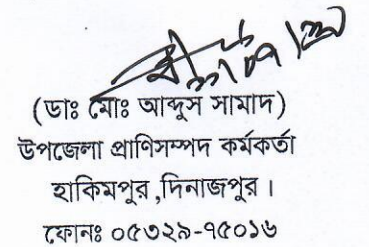 (ডাঃ মোঃ আব্দুস সামাদ)
উপজেলা প্রাণিসম্পদ কর্মকর্তা
হাকিমপুর,দিনাজপুর।
ফোনঃ ০৫৩২৯-৭৫০১৬